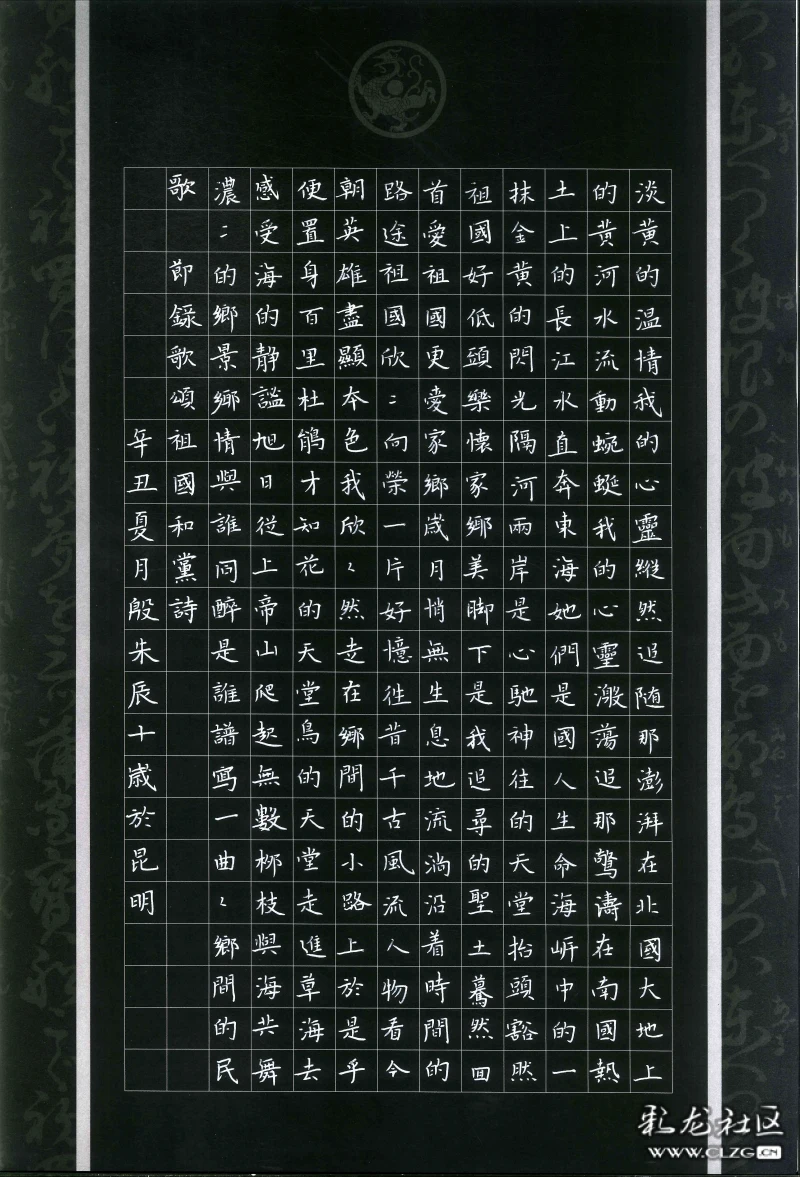 淡黄的温情我的心靈縱然追随那澎湃在北國大地上
的黄河水流動蜿蜒我的心靈激蕩追那驚濤在南國熱
土上的長江水直奔東海她們是國人生命海岍中的一
抹金黄的閃光隔河兩岸是心馳神往的天堂抬頭豁然
祖國好低頭樂懷家鄉美脚下是我追尋的聖土驀然回
首愛祖國更愛家鄉歲月悄無生息地流淌沿着時間的
路途祖國欣〻向榮一片好憶往昔千古風流人物看今
朝英雄盡顯本色我欣〻然走在鄉間的小路上於是乎
便置身百里杜鵑才知花的天堂鳥的天堂走進草海去
感受海的静謐旭日從上帝山爬起無數栁枝與海共舞
濃〻的鄉景鄉情與誰同醉是誰譜寫一曲〻鄉間的民
歌 節録歌頌祖國和黨詩
辛丑夏月殷朱辰十歲於昆明
彩龙社区
www.CLZG.CN